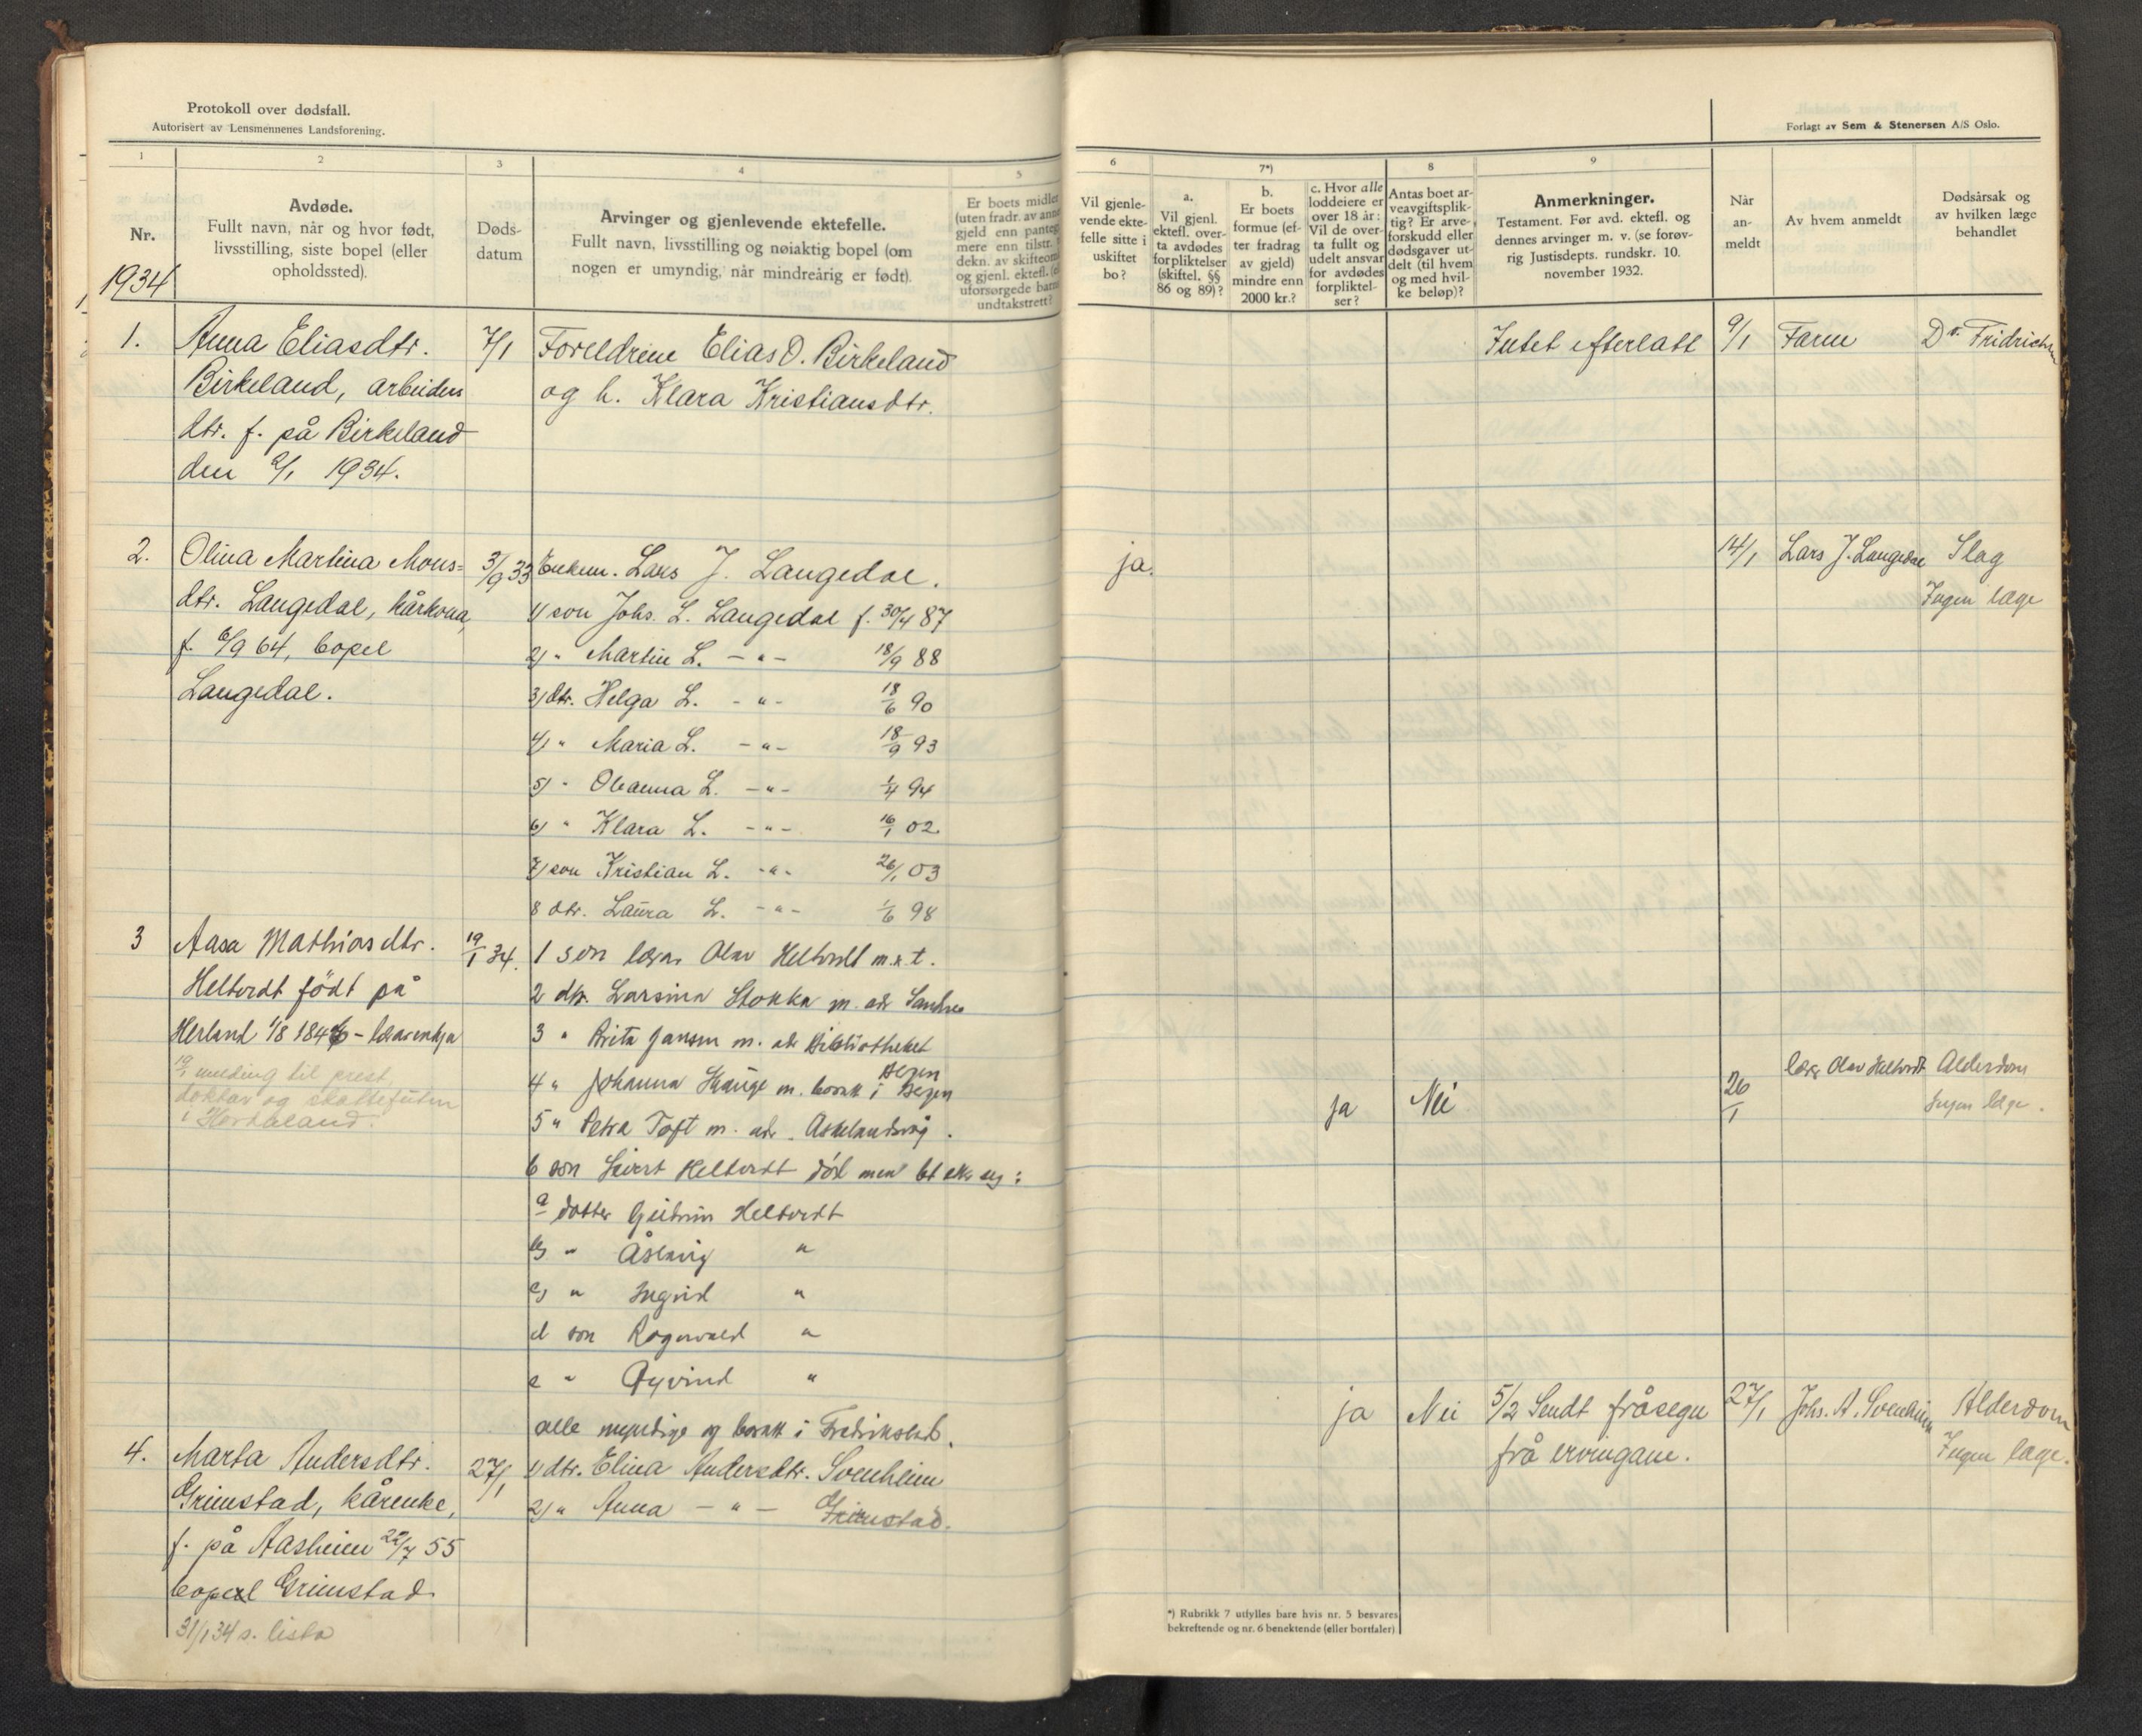 Protokoll over dødsfall.
Autorisert av Lensmennenes Landsforening.
Forlagt av Sem & Stenersen A/S Oslo.
1
2
3
4
5
6
7*)
8
9
Nr.
Avdøde.
Fullt navn, når og hvor født,
livsstilling, siste bopel (eller
opholdssted).
Døds-
datum
Arvinger og gjenlevende ektefelle.
Fullt navn, livsstilling og nøiaktig bopel (om
nogen er umyndig, når mindreårig er født).
Er boets midler
(uten fradr. av
gjeld enn
mere enn tilstr.
dekn. av
og gjenl. ektefl.
uforsørgede
undtakstrett?
Vil gjenle-
vende ekte-
felle sitte i
uskiftet
bo?
a.
Vil gjenl.
ektefl. over-
ta avdødes
forpliktelser
(skiftel. §§
86 og 89)?
b.
Er boets
formue (ef-
ter fradrag
av gjeld)
mindre enn
2000 kr.?
c. Hvor alle
loddeiere er
over 18 år:
Vil de over-
ta fullt og
udelt ansvar
for avdødes
forpliktel-
ser?
Antas boet ar-
veavgiftsplik-
tig? Er arve-
forskudd eller
dødsgaver ut-
delt (til hvem
og med hvil-
ke beløp)?
Anmerkninger.
Testament. Før avd. ektefl. og
dennes arvinger m. v. (se forøv-
rig Justisdepts. rundskr. 10.
november 1932.
Når
an-
meldt
Av hvem anmeldt
Dødsårsak og
av hvilken læge
behandlet
1934
1.
Anna Eliasdtr.
Birkeland, arbeiders
dtr. f. på Birkeland
den 2/1 1934.
7/1
Foreldrene Elias O. Birkeland
og h. Klara Kristiansdtr.
Intet efterlatt
9/1
Faren
Dr. Fridrichsen
2.
Olina Martina Mons=
dtr. Langedal, kårkona,
f. 6/9 64, bopel
Langedal.
3/9 33
Enkem. Lars J. Langedal.
1) son Johs. L. Langedal f. 30/4 87
2) " Martin L. - " - 18/9 88
3) dtr. Helga L. - " - 18/6 90
4) " Maria L. - " - 18/9 93
5) " Oleanna L. - " - 1/4 94
6) " Klara L. - " - 16/1 02
7) son Kristian L. - " - 26/1 03
8 dtr. Laura L. - " - 1/6 98
ja.
14/1
Lars J. Langedal
Slag
Ingen læge
3
Aasa Mathiasdtr.
Heltvedt født på
Herland 1/8 1846 -
19/1 melding til prest,
doktar og skattefuten
i Hordaland.
19/1 34.
1 son lærar Olav Heltvedt
2 dtr. Larsina Stokka m. adr
3 " Brita Jansen m. adr Bibliotheket
Bergen
4 " Johanna Hauge m. busatt i Bergen
5 " Petra Toft m. adr. Askelandsvåg.
6 son Sivert Heltvedt død men let etter seg:
a dotter Gudrun Heltvedt
b) " Åslaug "
c) " Ingrid "
d son Ragnvald "
e " Øyvind "
alle myndige og busatt i Fredrikstad.
ja
Nei
26/1
lærar Olav Heltvedt
Alderdom
Ingen læge.
4.
Marta Andersdtr.
Grimstad, kårenke,
f. på Aasheim 22/7 55
bopel Grimstad
31/1 34 s. lista
27/1
1) dtr. Elina Andersdtr. Soenheim
2) " Anna - " - Grimstad.
ja
Nei
5/2 Sendt fråsegn
frå ervingane.
27/1
Johs. A. Soenheim
Alderdom
Ingen læge.
*) Rubrikk 7 utfylles bare hvis nr. 5 besvares
bekreftende og nr. 6 benektende (eller bortfaler)